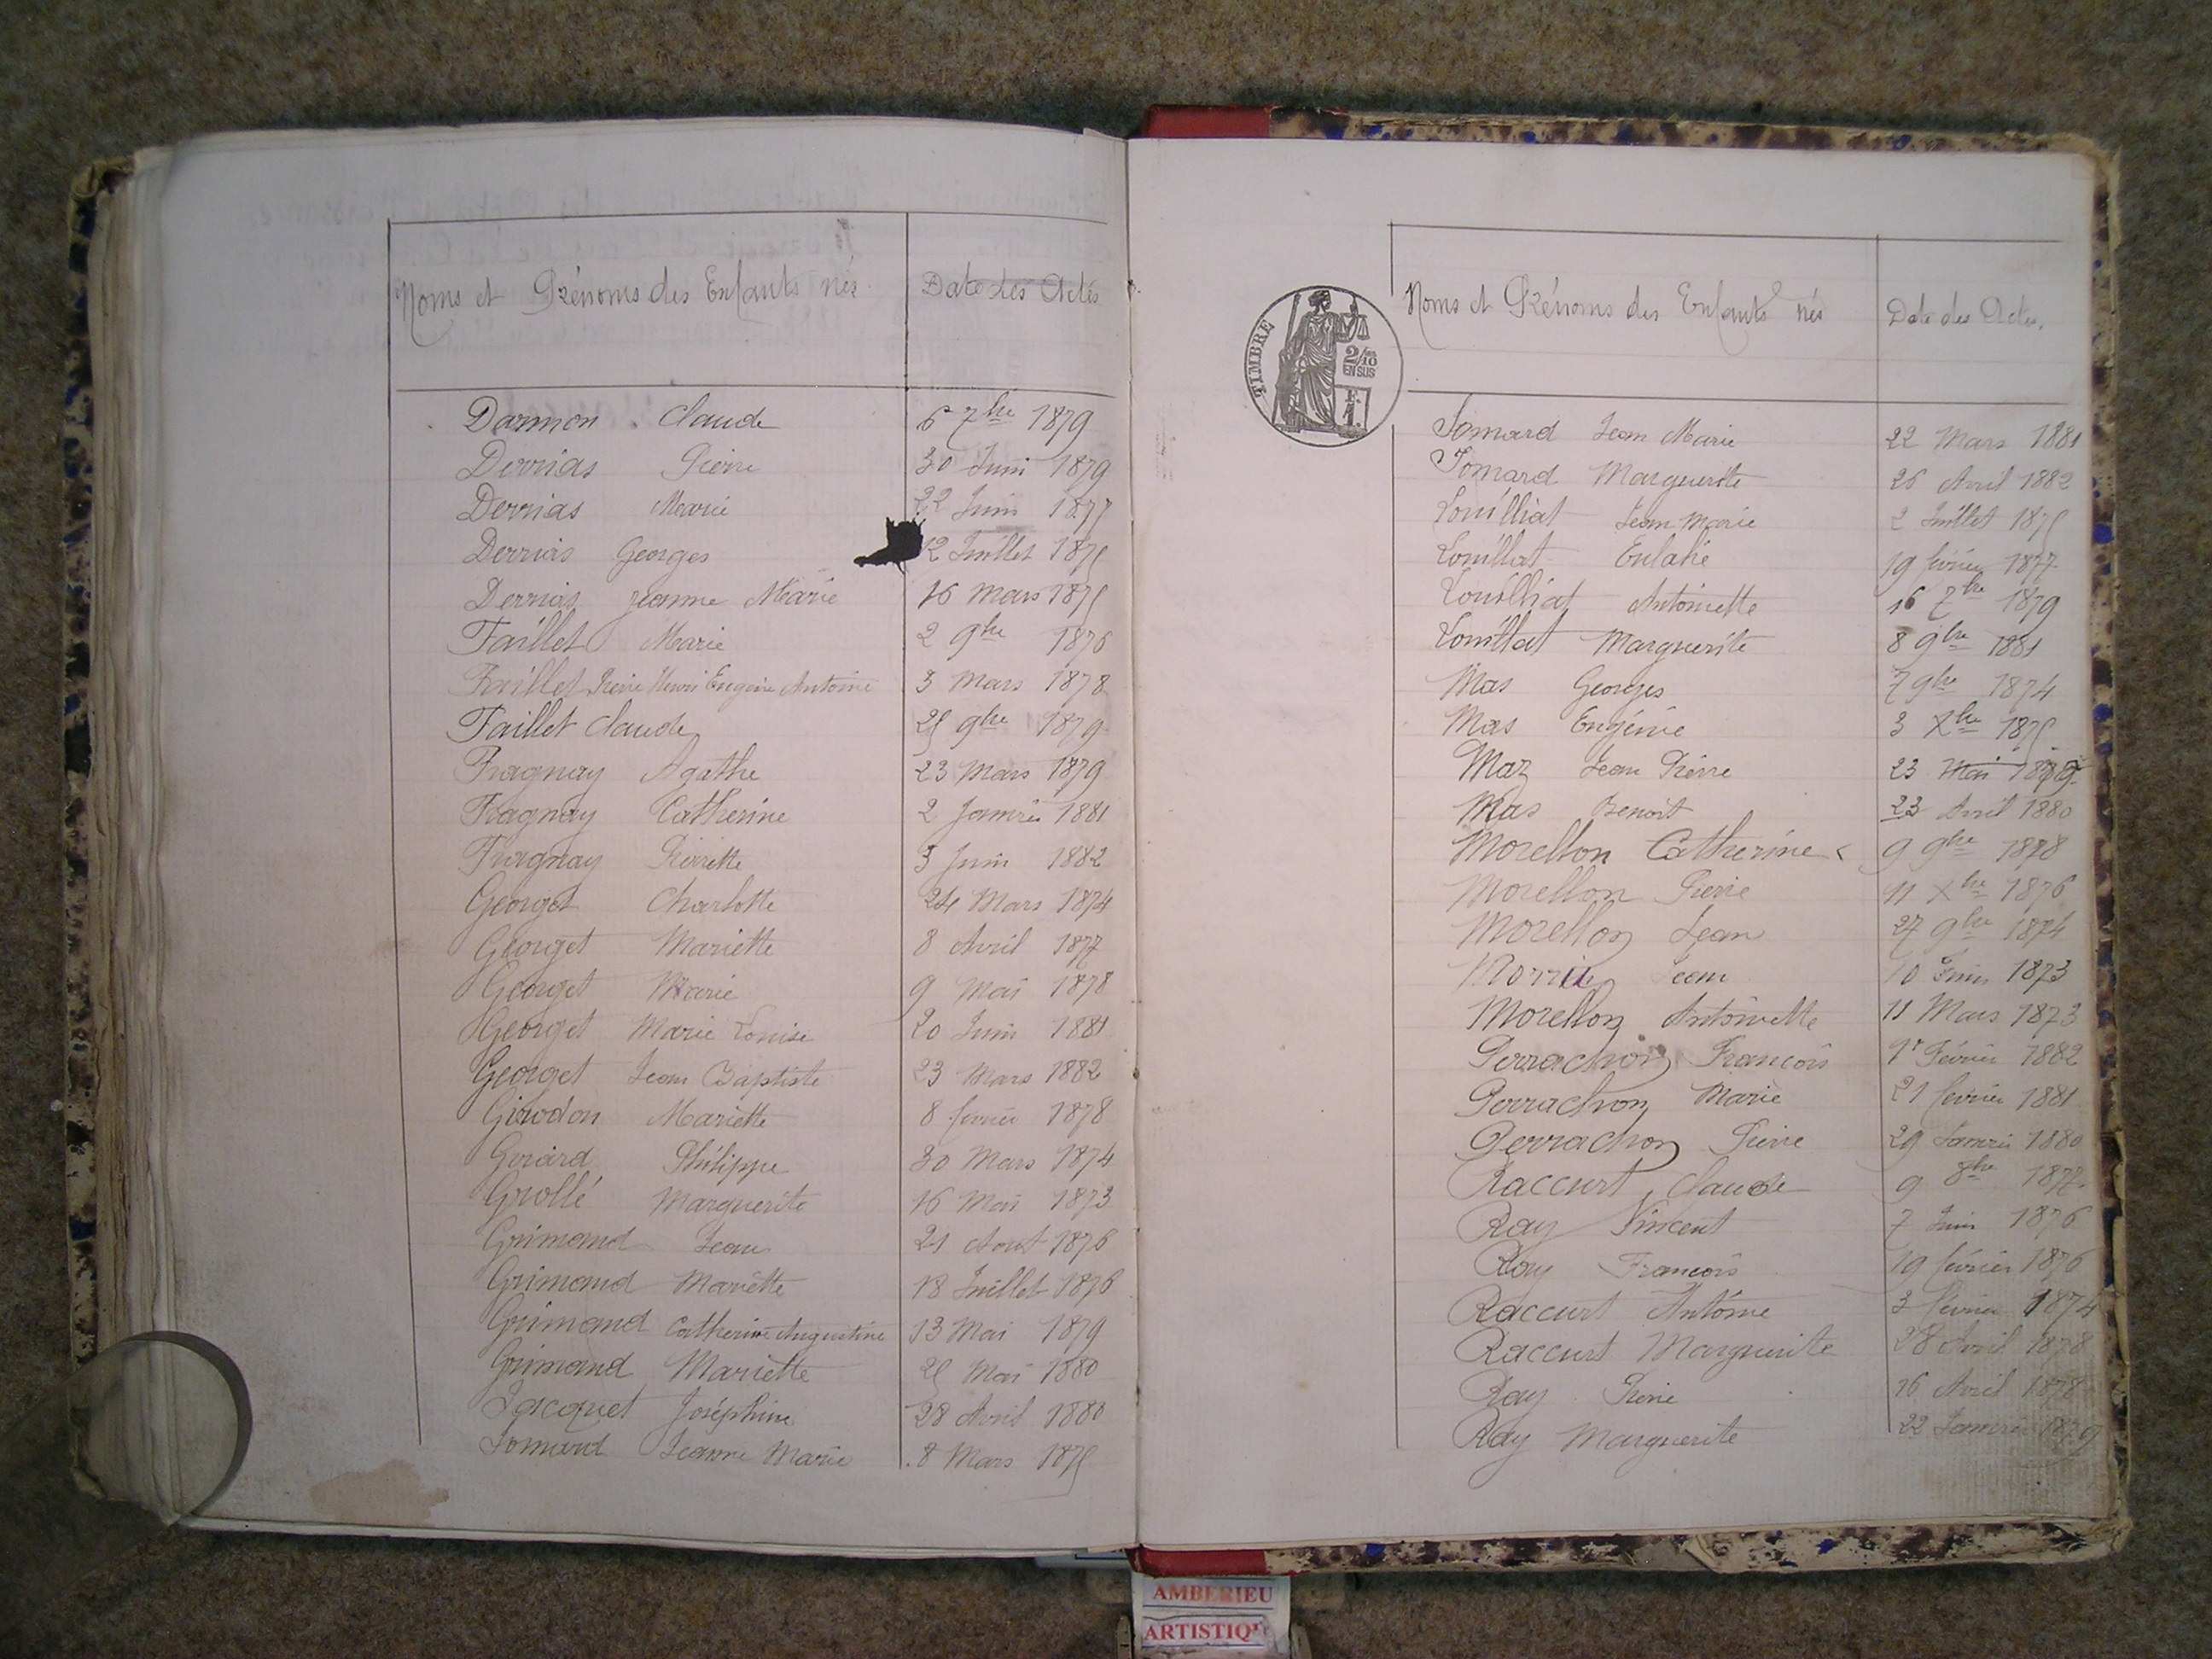 Noms et Prénoms des Enfants nés Date des Actes
Darmon Claude 6 7bre 1879
Derrias Pierre 30 Juin 1879
Derrias Marie 22 Juin 1877
Derrias Georges 12 Juillet 1875
Derrias Jeanne Marie 16 Mars 1875
Faillet Marie 2 9bre 1876
Faillet Pierre Henri Eugène Antoine 3 Mars 1878
Faillet Claude 25 9bre 1879
Fragnay Agathe 23 Mars 1879
Fragnay Catherine 2 Janvier 1881
Fragnay Pierrette 3 Juin 1882
Georget Charlotte 24 Mars 1874
Georget Mariette 8 Avril 1877
Georget Marie 9 Mai 1878
Georget Marie Louise 20 Juin 1881
Georget Jean Baptiste 23 Mars 1882
Girodon Mariette 8 février 1878
Gerard Philippe 30 Mars 1874
Grollé Marguerite 16 Mai 1873
Grimand Jean 21 Aout 1876
Grimand Mariette 18 Juillet 1876
Grimand Catherine Augustine 13 Mai 1879
Grimand Mariette 25 Mai 1880
Jacquet Joséphine 28 Avril 1880
Jomard Jeanne Marie 8 Mars 1875
TIMBRE
2/10
EN SUS
F.
1.
Noms et Prénoms des Enfants nés Date des Actes.
Jomard Jean Marie 22 Mars 1881
Jomard Marguerite 26 Avril 1882
Louilliat Jean Marie 2 Juillet 1875
Louillat Eulalie 19 février 1877
Louilliat Antoinette 16 7bre 1879
Louillat Marguerite 8 9bre 1881
Mas Georges 7 9bre 1874
Mas Eugénie 3 Xbre 1875
Maz Jean Pierre 23 Mai
Mas Benoit 23 Avril 1880
Morellon Catherine 9 9bre 1878
Morellon Pierre 11 Xbre 1876
Morellon Jean 27 9bre 1874
Jean 10 Juin 1873
Morellon Antoinette 11 Mars 1873
Perrachon François 1r Février 1882
Perrachon Marie 21 février 1881
Perrachon Pierre 29 Janvier 1880
Raccurt Claude 9 8bre 1877
Ray Vincent 7 Juin 1876
Ray François 19 février 1876
Raccurt Antoine 3 février 1874
Raccurt Marguerite 28 Avril 1878
Ray Pierre 16 Avril 1878
Ray Marguerite 22 Janvier 1879
AMBERIEU
ARTISTIQ